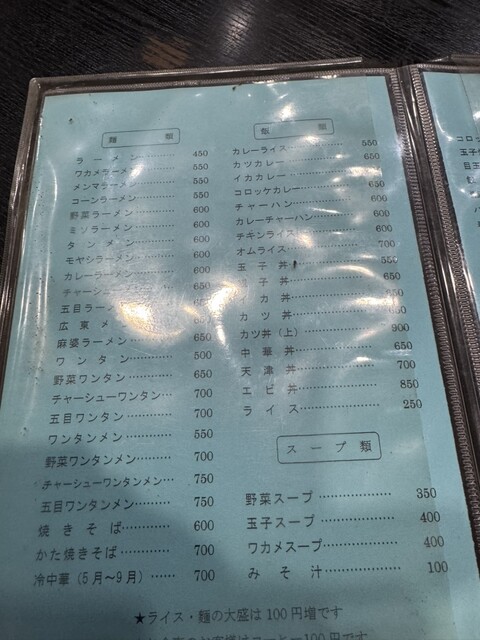 麺類
ラーメン………… 450
ワカメラーメン…… 550
メンマラーメン…… 550
コーンラーメン…… 550
野菜ラーメン……… 600
ミソラーメン……… 600
タンメン………… 600
モヤシラーメン…… 600
カレーラーメン…… 600
チャーシュー
五目ラー 650
広東メ 650
麻婆ラーメン……… 650
ワンタン………… 500
野菜ワンタン……… 650
チャーシューワンタン… 700
五目ワンタン……… 700
ワンタンメン……… 550
野菜ワンタンメン…… 700
チャーシューワンタンメン… 750
五目ワンタンメン…… 750
焼きそば………… 600
かた焼きそば……… 700
冷中華(5月〜9月)…… 700
飯類
カレーライス……… 550
カツカレー………… 650
イカカレー………… 650
コロッケカレー…… 650
チャーハン………… 600
カレーチャーハン…… 600
チキンライス……… 600
オムライス………… 700
玉子丼 550
子丼 650
イカ丼 650
カツ丼………… 650
カツ丼(上)……… 900
中華丼………… 650
天津丼………… 700
エビ丼………… 850
ライス………… 250
スープ類
野菜スープ………………… 350
玉子スープ………………… 400
ワカメスープ……………… 400
みそ汁………………… 100
★ライス・麺の大盛は100円増です
コロッ
玉子
目玉